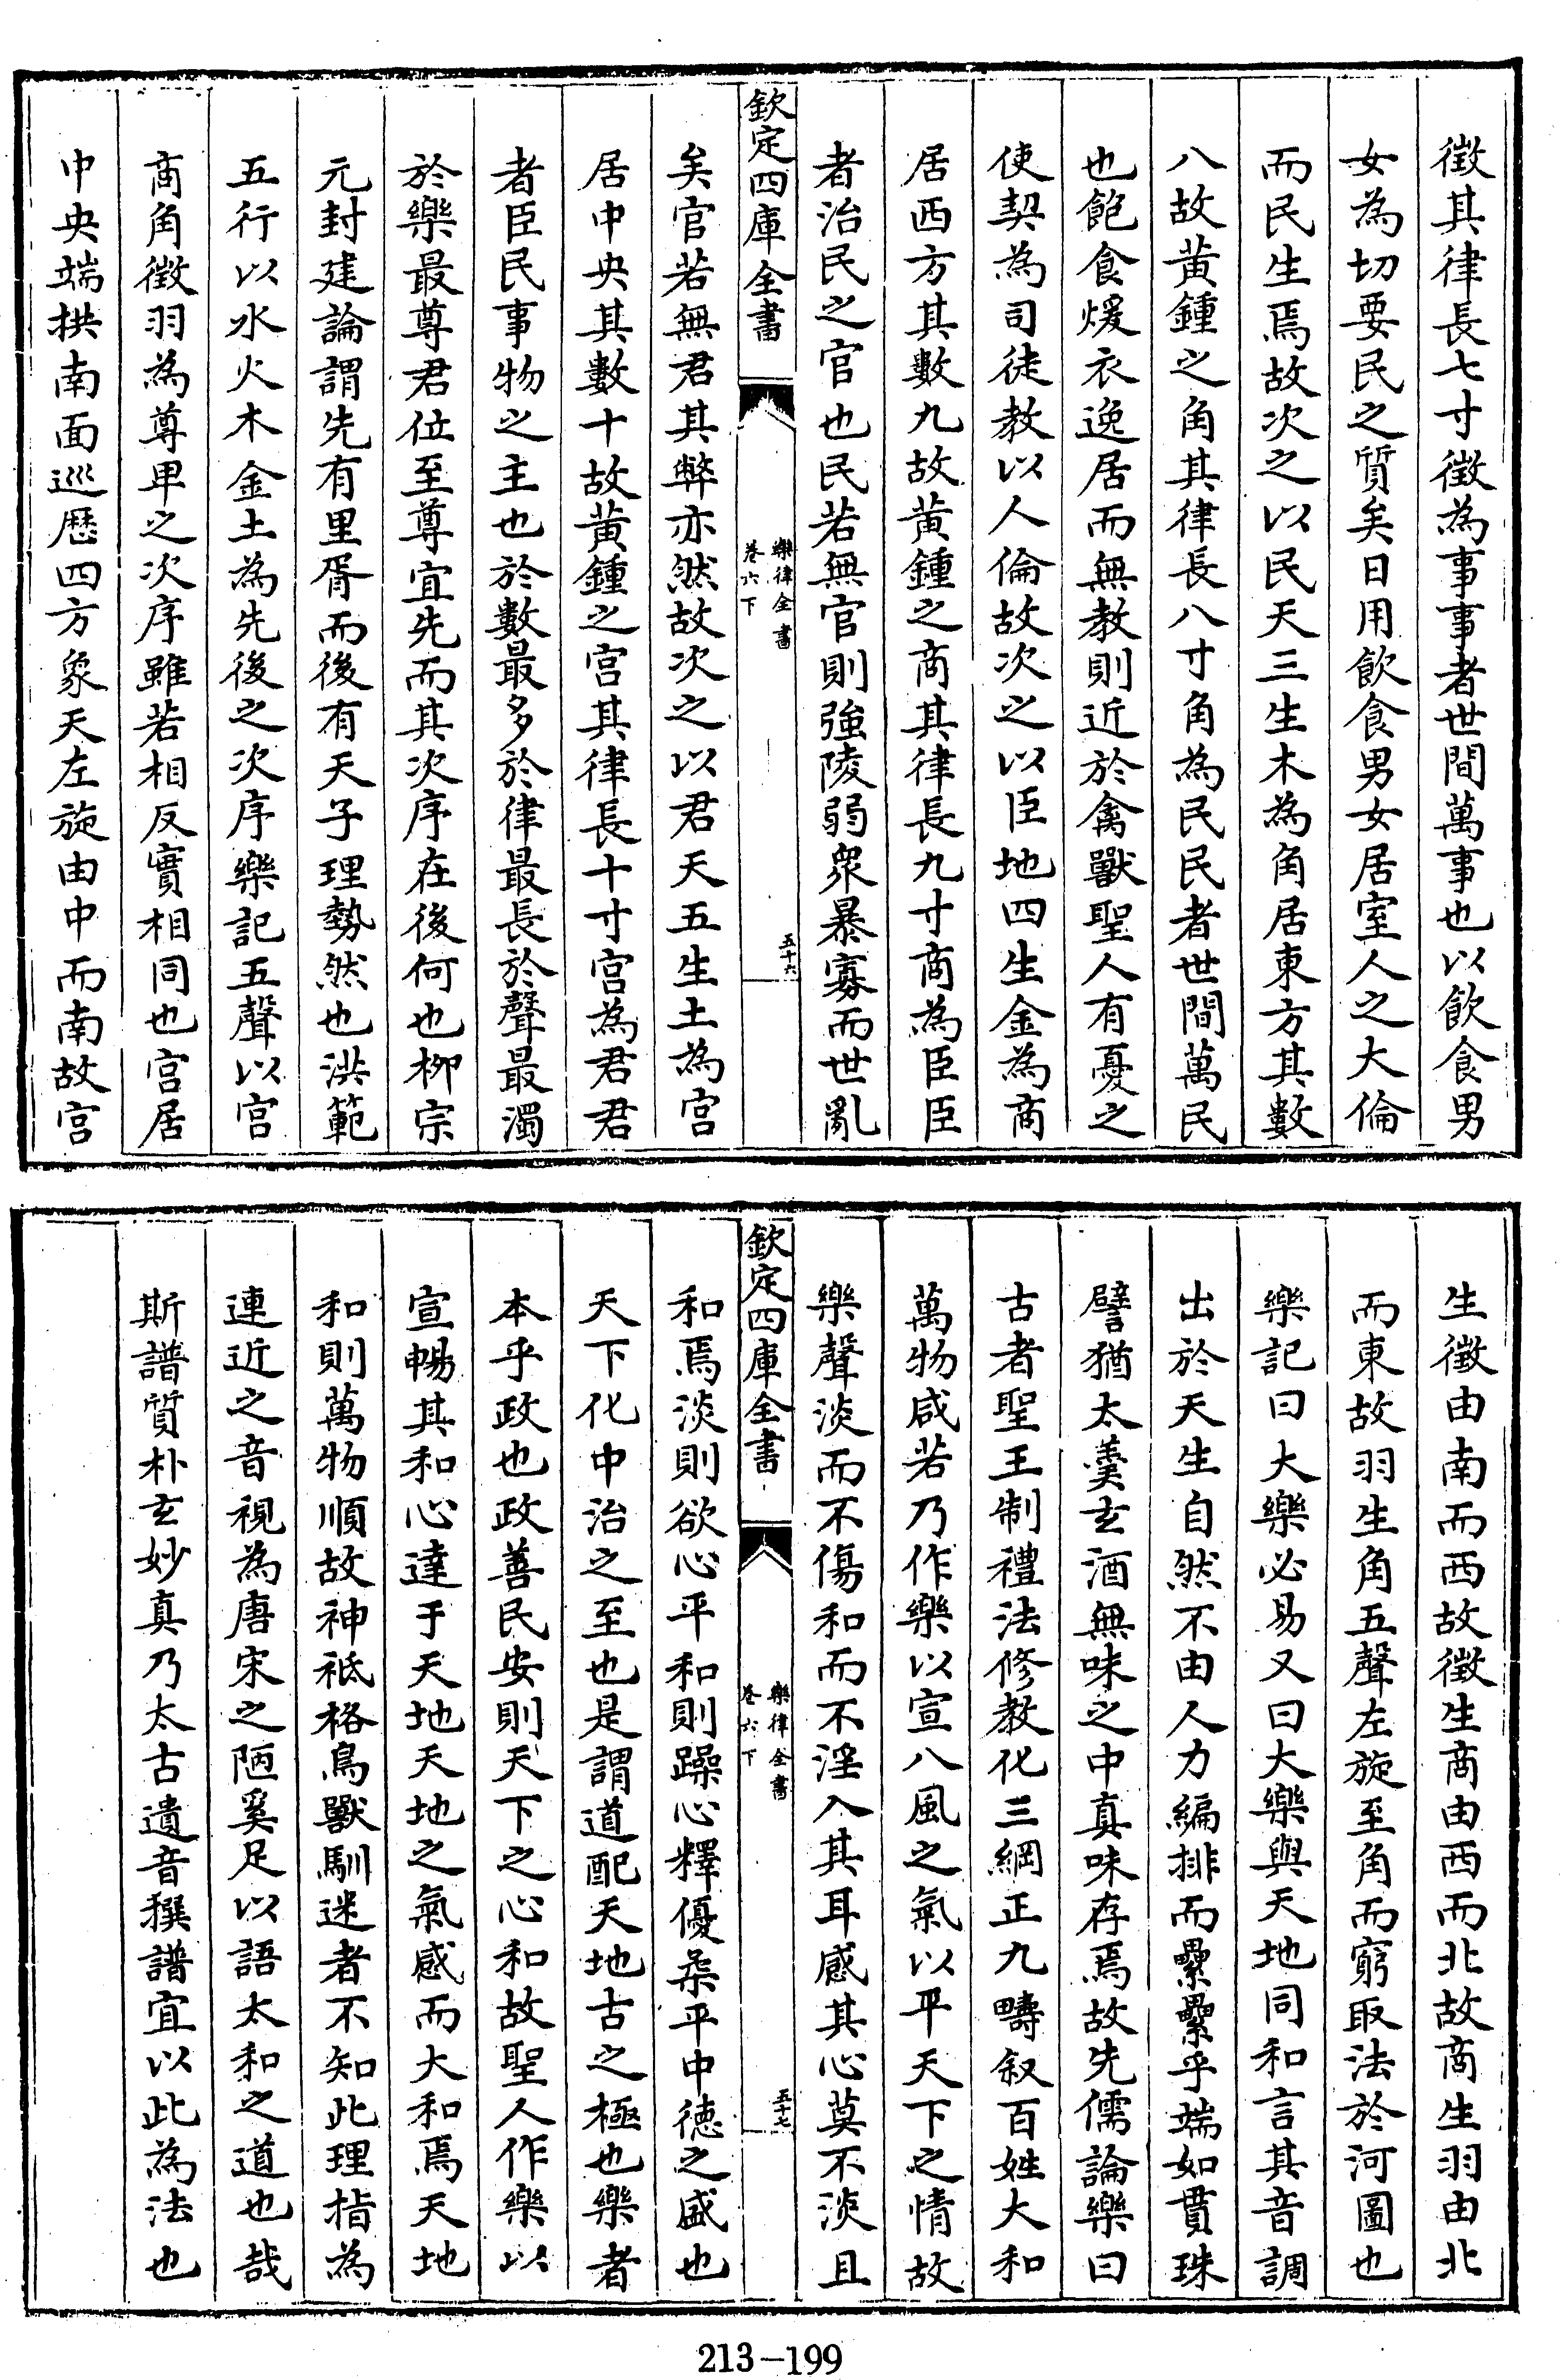 徴其律長七寸徴為事事者世間萬事也以飲食男
女為切要民之質矣日用飲食男女居室人之大倫
而民生焉故次之以民天三生木為角居東方其數
八故黃鍾之角其律長八寸角為民民者世間萬民
也飽食煖衣逸居而無教則近於禽獸聖人有憂之
使契為司徒教以人倫故次之以臣地四生金為商
居西方其數九故黃鍾之商其律長九寸商為臣臣
者治民之官也民若無官則強陵弱衆暴寡而世亂
欽定四庫全書
樂律全書
卷六下
五十六
矣官若無君其弊亦然故次之以君天五生土為宫
居中央其數十故黃鍾之宫其律長十寸宫為君君
者臣民事物之主也於數最多於律最長於聲最濁
於樂最尊君位至尊宜先而其次序在後何也柳宗
元封建論謂先有里胥而後有天子理勢然也洪範
五行以水火木金土為先後之次序樂記五聲以宫
商角徴羽為尊卑之次序雖若相反實相同也宫居
中央端拱南面巡歷四方象天左旋由中而南故宫
生徴由南而西故徴生商由西而北故商生羽由北
而東故羽生角五聲左旋至角而窮取法於河圖也
樂記曰大樂必易又曰大樂與天地同和言其音調
出於天生自然不由人力編排而纍纍乎端如貫珠
譬猶太羹玄酒無味之中真味存焉故先儒論樂曰
古者聖王制禮法修教化三綱正九疇叙百姓大和
萬物咸若乃作樂以宣八風之氣以平天下之情故
樂聲淡而不傷和而不淫入其耳感其心莫不淡且
欽定四庫全書
樂律全書
卷六下
五十七
和焉淡則欲心平和則躁心釋優柔平中徳之盛也
天下化中治之至也是謂道配天地古之極也樂者
本乎政也政善民安則天下之心和故聖人作樂以
宣暢其和心達于天地天地之氣感而大和焉天地
和則萬物順故神祗格鳥獸馴迷者不知此理指為
連近之音視為唐宋之陋奚足以語太和之道也哉
斯譜質朴玄妙真乃太古遺音撰譜宜以此為法也
213-199